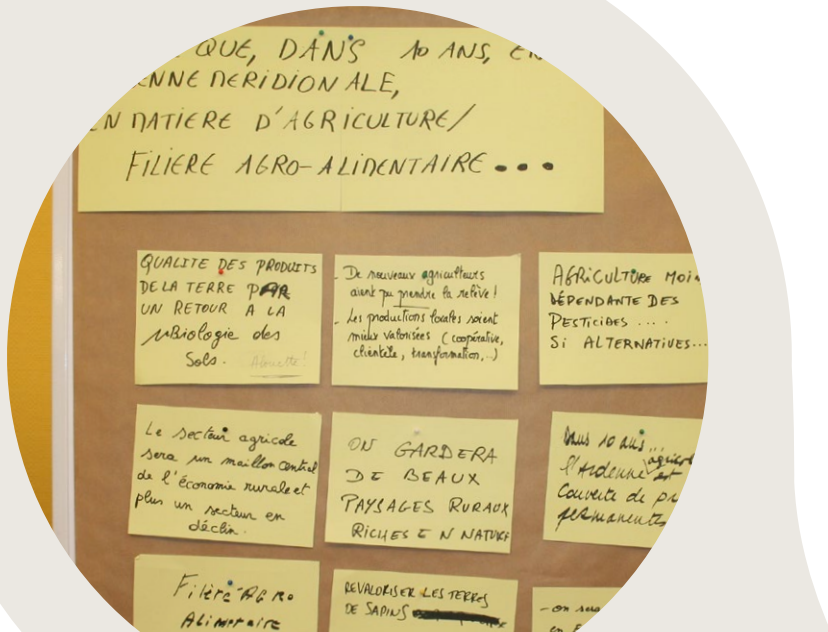 QUE, DANS 10 ANS, EN
ENNE MERIDIONALE,
EN MATIERE D'AGRICULTURE/
FILIERE AGRO-ALIMENTAIRE...
QUALITE DES PRODUITS
DE LA TERRE PAR
UN RETOUR A LA
µBiologie des
Sols. Alouette!
- De nouveaux agriculteurs
aient pu prendre la relève!
- Les productions locales soient
mieux valorisées (coopérative,
clientèle, transformation,..)
AGRICULTURE MOIN
DÉPENDANTE DES
PESTICIDES ....
SI ALTERNATIVES...
Le secteur agricole
sera un maillon central
de l'économie rurale et
plus un secteur en
déclin.
ON GARDERA
DE BEAUX
PAYSAGES RURAUX
RICHES EN NATURE
Dans 10 ans...
l'Ardenne agricole est
couverte de pr
permanentes
Filière AGRO
Alimentaire
REVALORISER LES TERRES
DE SAPINS
- on sera
en